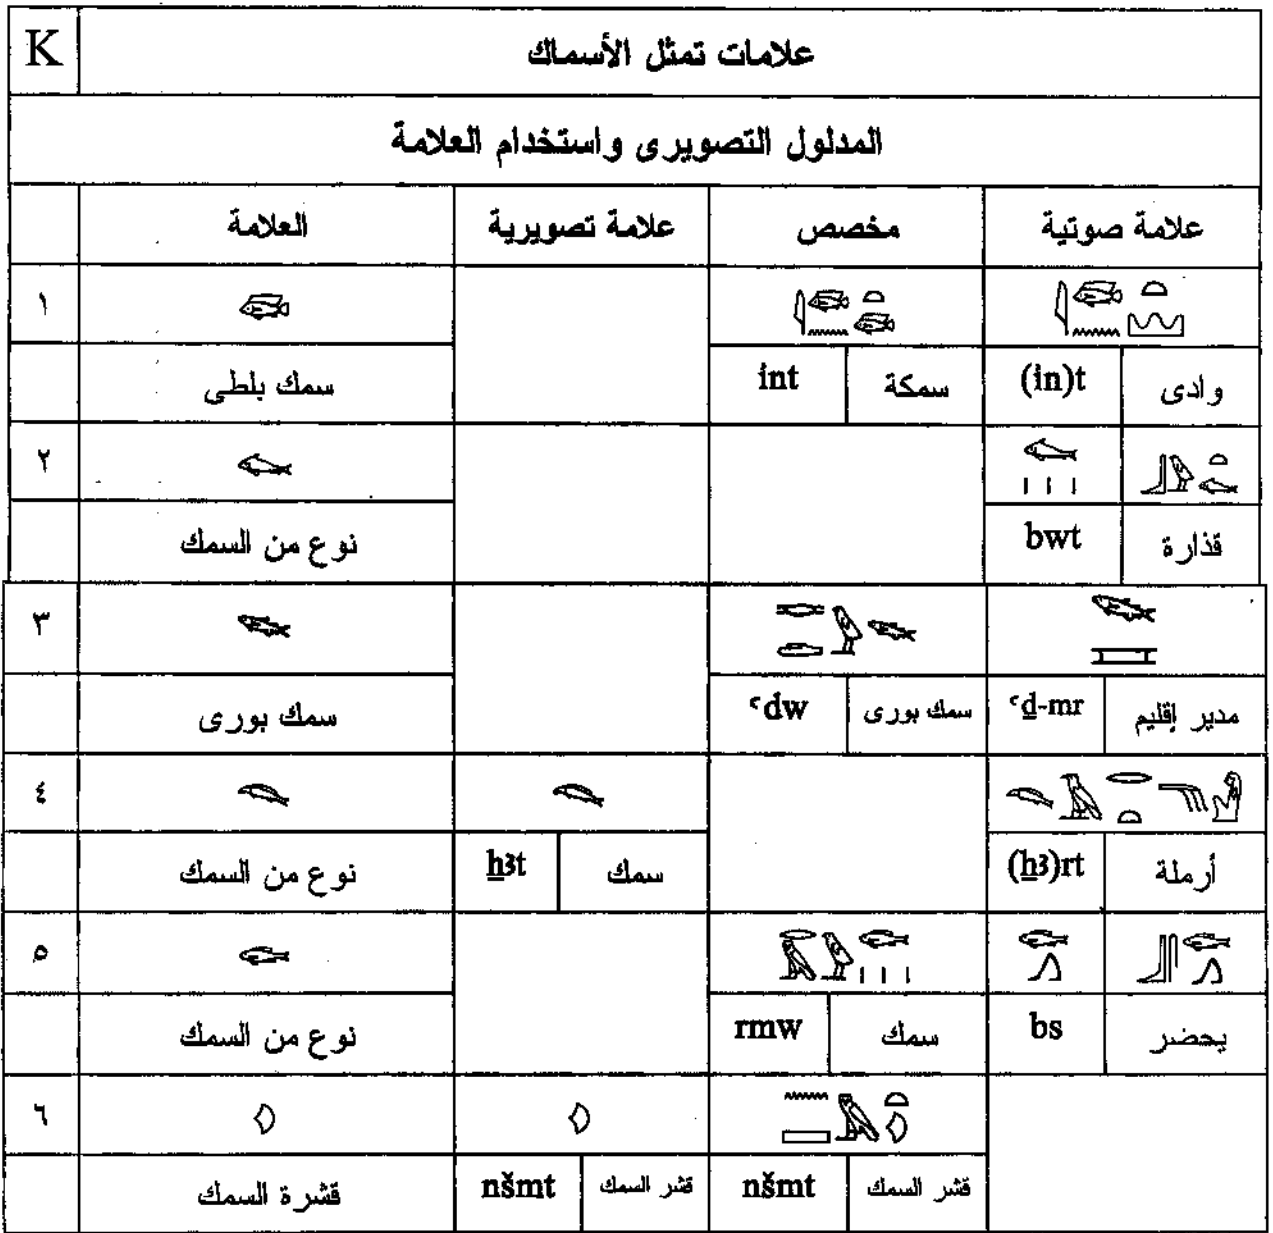 K علامات تمثل الأسماك
المدلول التصويرى واستخدام العلامة
العلامة علامة تصويرية مخصص علامة صوتية
١
سمك بلطى int سمكة (in)t وادى
٢
نوع من السمك bwt قذارة
٣
سمك بورى ꜥdw سمك بورى ꜥḏ-mr مدير إقليم
٤
نوع من السمك ẖꜣt سمك (ẖꜣ)rt أرملة
٥
نوع من السمك rmw سمك bs يحضر
٦
قشرة السمك nšmt قشر السمك nšmt قشر السمك